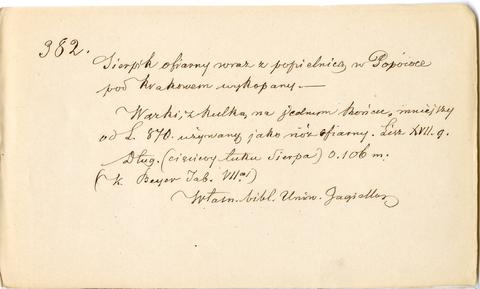 382.
Sierpik ofiarny wraz z popielnicą w Popówce
pod Krakowem wykopany.—
Wazki, z kulką na jednym końcu, mniejszy
od L. 870. używany jako nóż ofiarny. Lisz. XVII. g.
Dług. (cięciwy łuku Sierpa) 0.106 m.
(k. Beyer Tab. VII a)
Własn. bibl. Uniw. Jagiellon